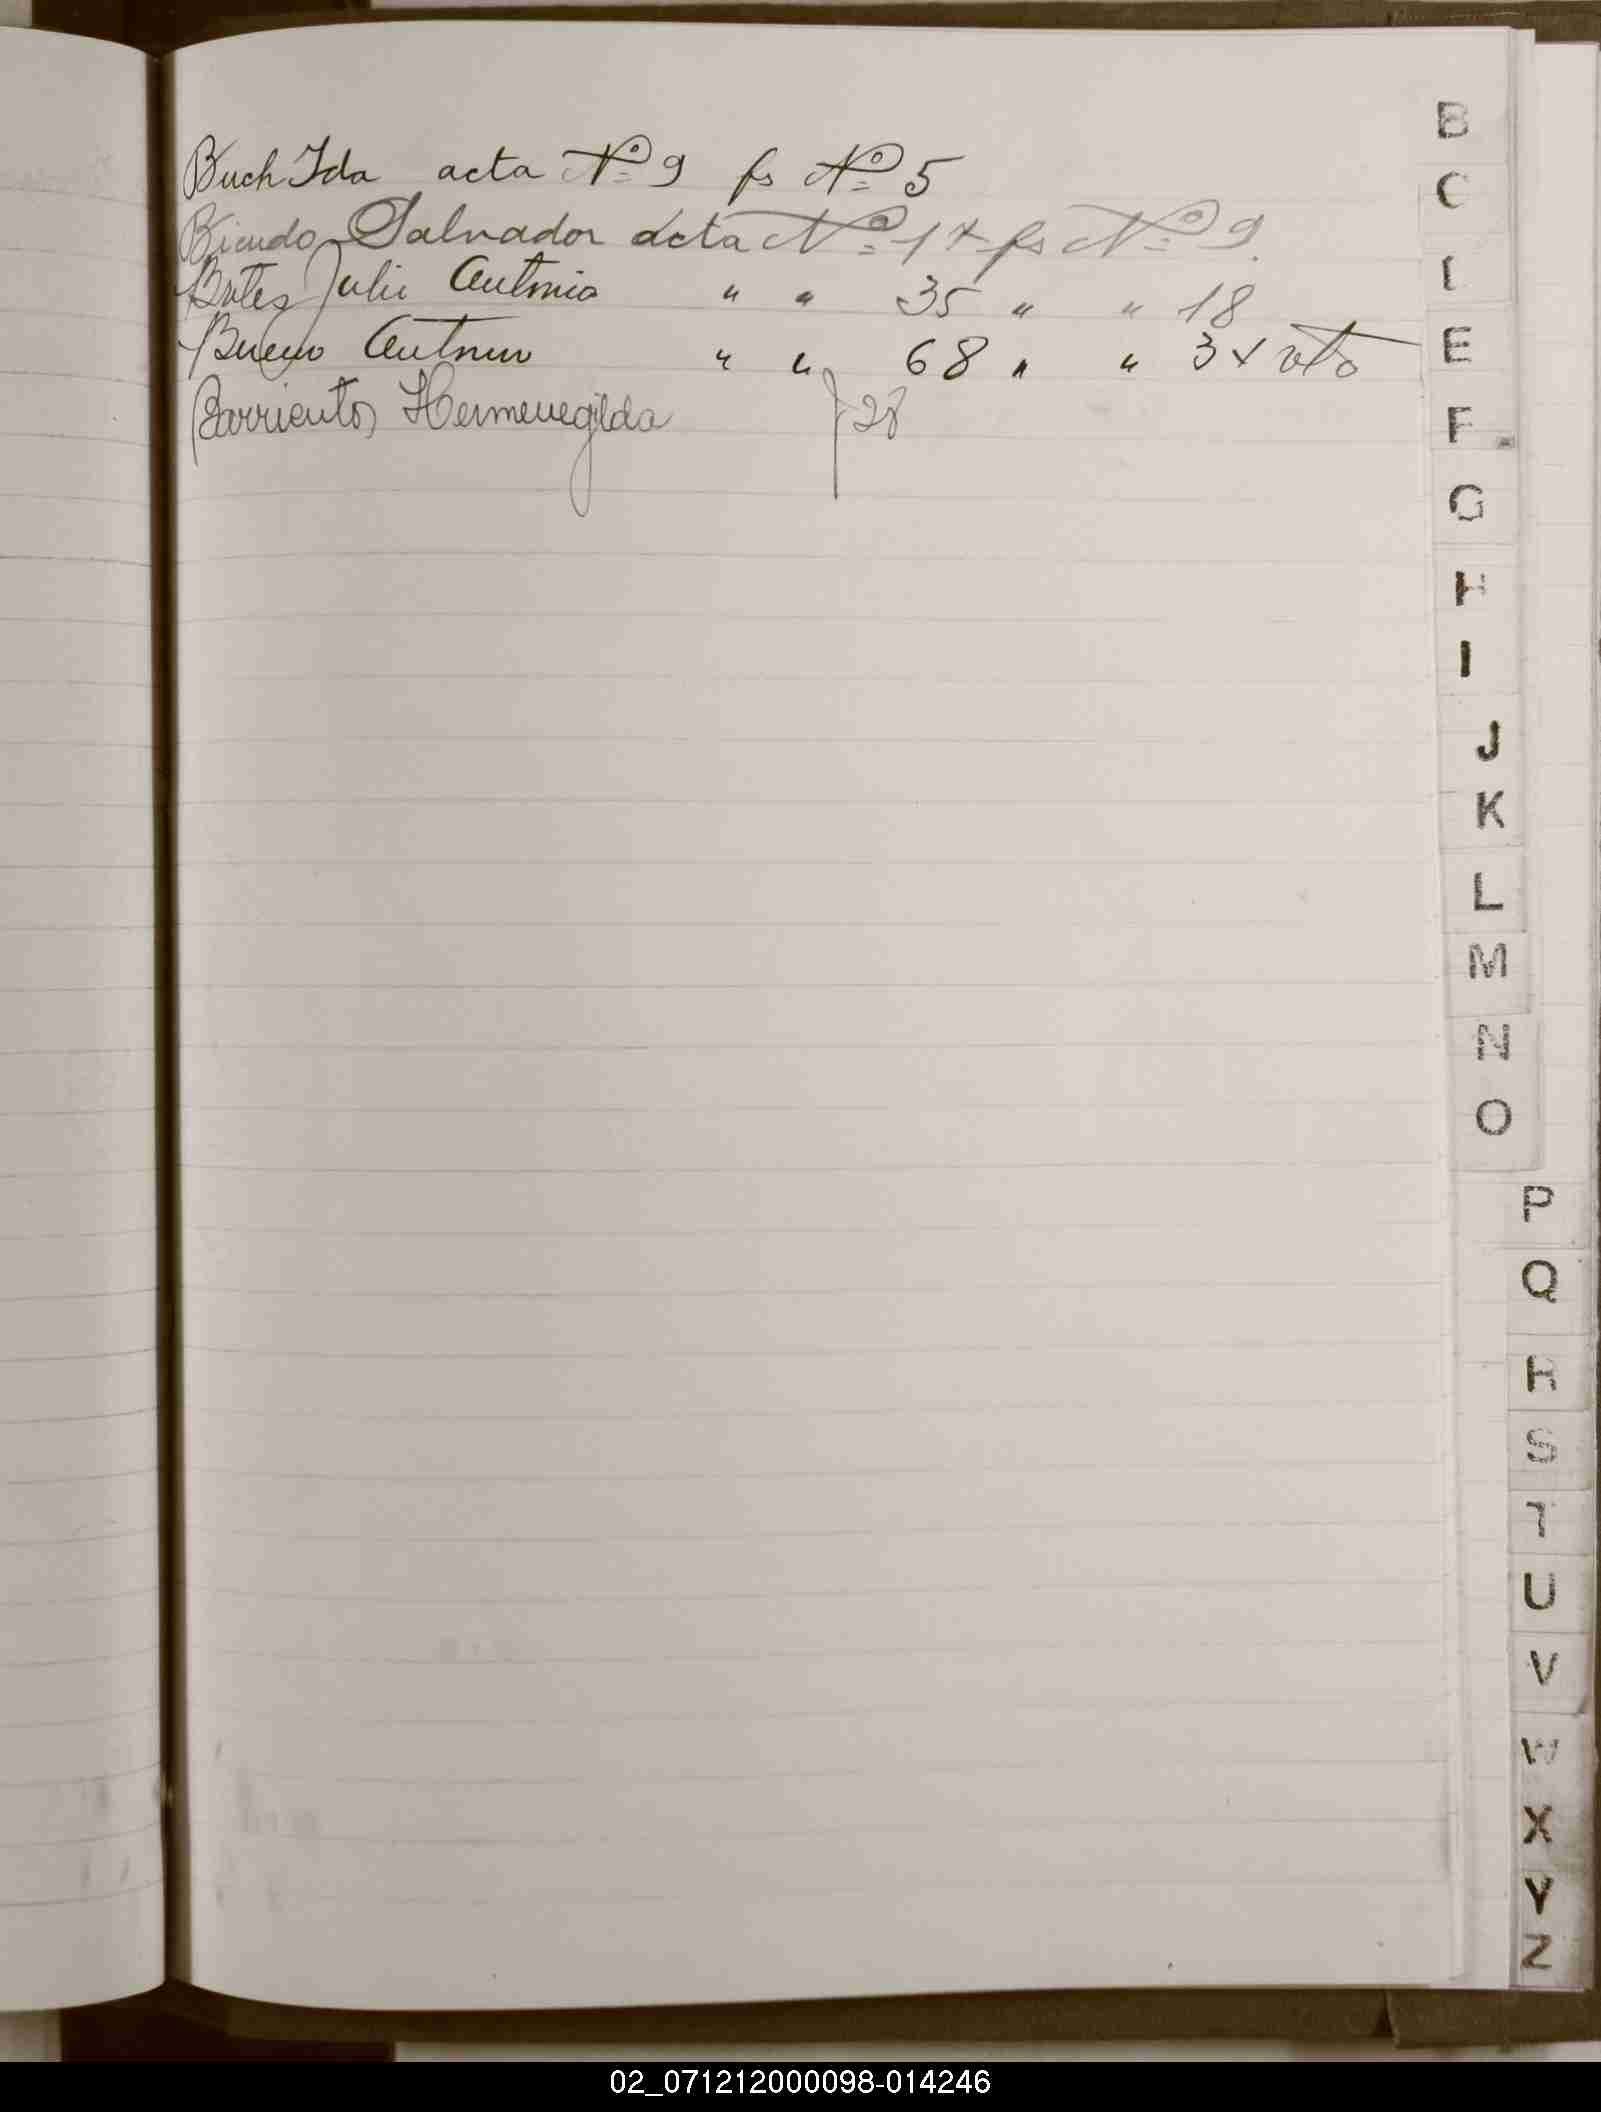 Buch Ida acta Nº 9 fs Nº 5
Salvador acta Nº 17 fs Nº 9.
Bates Julio Antonio " " 35 " " 18
Bueno Antonio " " 68 " " 34 vto
Barrientos Hermenegilda f 28
B
C
E
F
G
H
I
J
K
L
M
N
O
P
Q
R
S
T
U
V
W
X
Y
Z
02_071212000098-014246